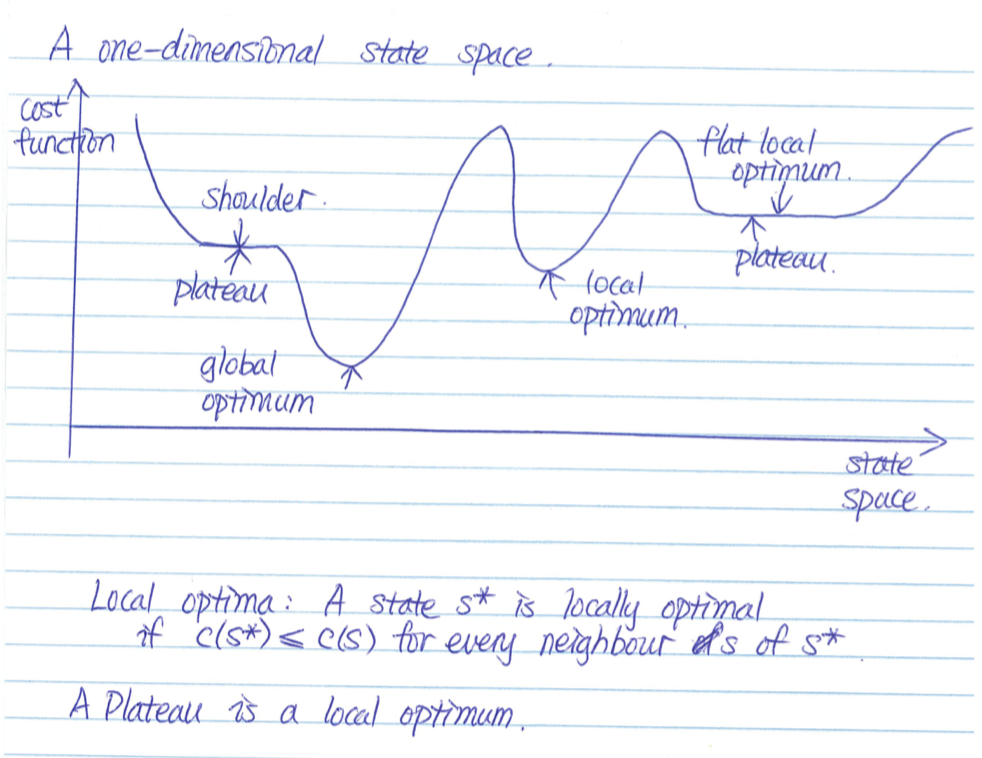 A one-dimensional state space.
cost
function
shoulder.
plateau
global
optimum
local
optimum.
flat local
optimum.
plateau.
state
space.
Local optima: A state s* is locally optimal
if c(s*) ≤ c(s) for every neighbour s of s*
A Plateau is a local optimum.